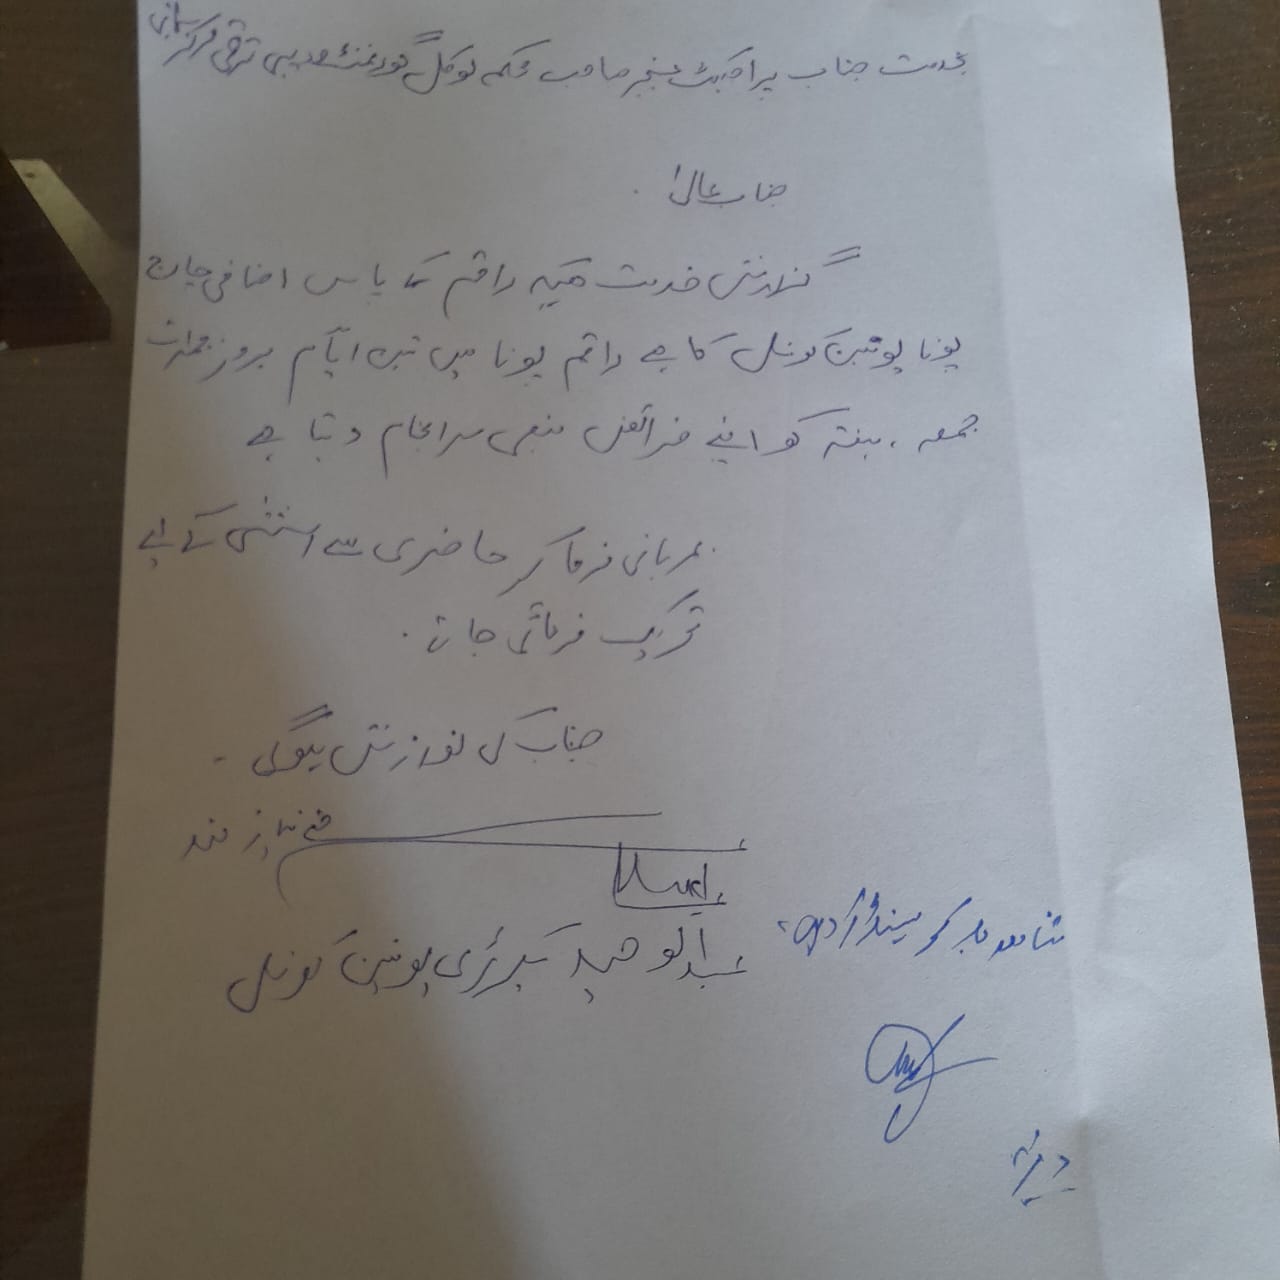 بخدمت جناب پراجیکٹ منیجر صاحب محکمہ لوکل گورنمنٹ و دیہی ترقی مرکز
جناب عالیٰ
گزارش خدمت ہیکہ راقم کے پاس اضافی چارج
پونا یونین کونسل کا ہے راقم پونا میں تین ایام بروز جمعرات
جمعہ، ہفتہ کو اپنے فرائض منصبی سرانجام دیتا ہے
مہربانی فرما کر حاضری سے استثنیٰ کے لیے
تحریک فرمائی جائے۔
جناب کی نوازش ہوگی۔
نیاز مند
عبدالوحید سیکرٹری یونین کونسل